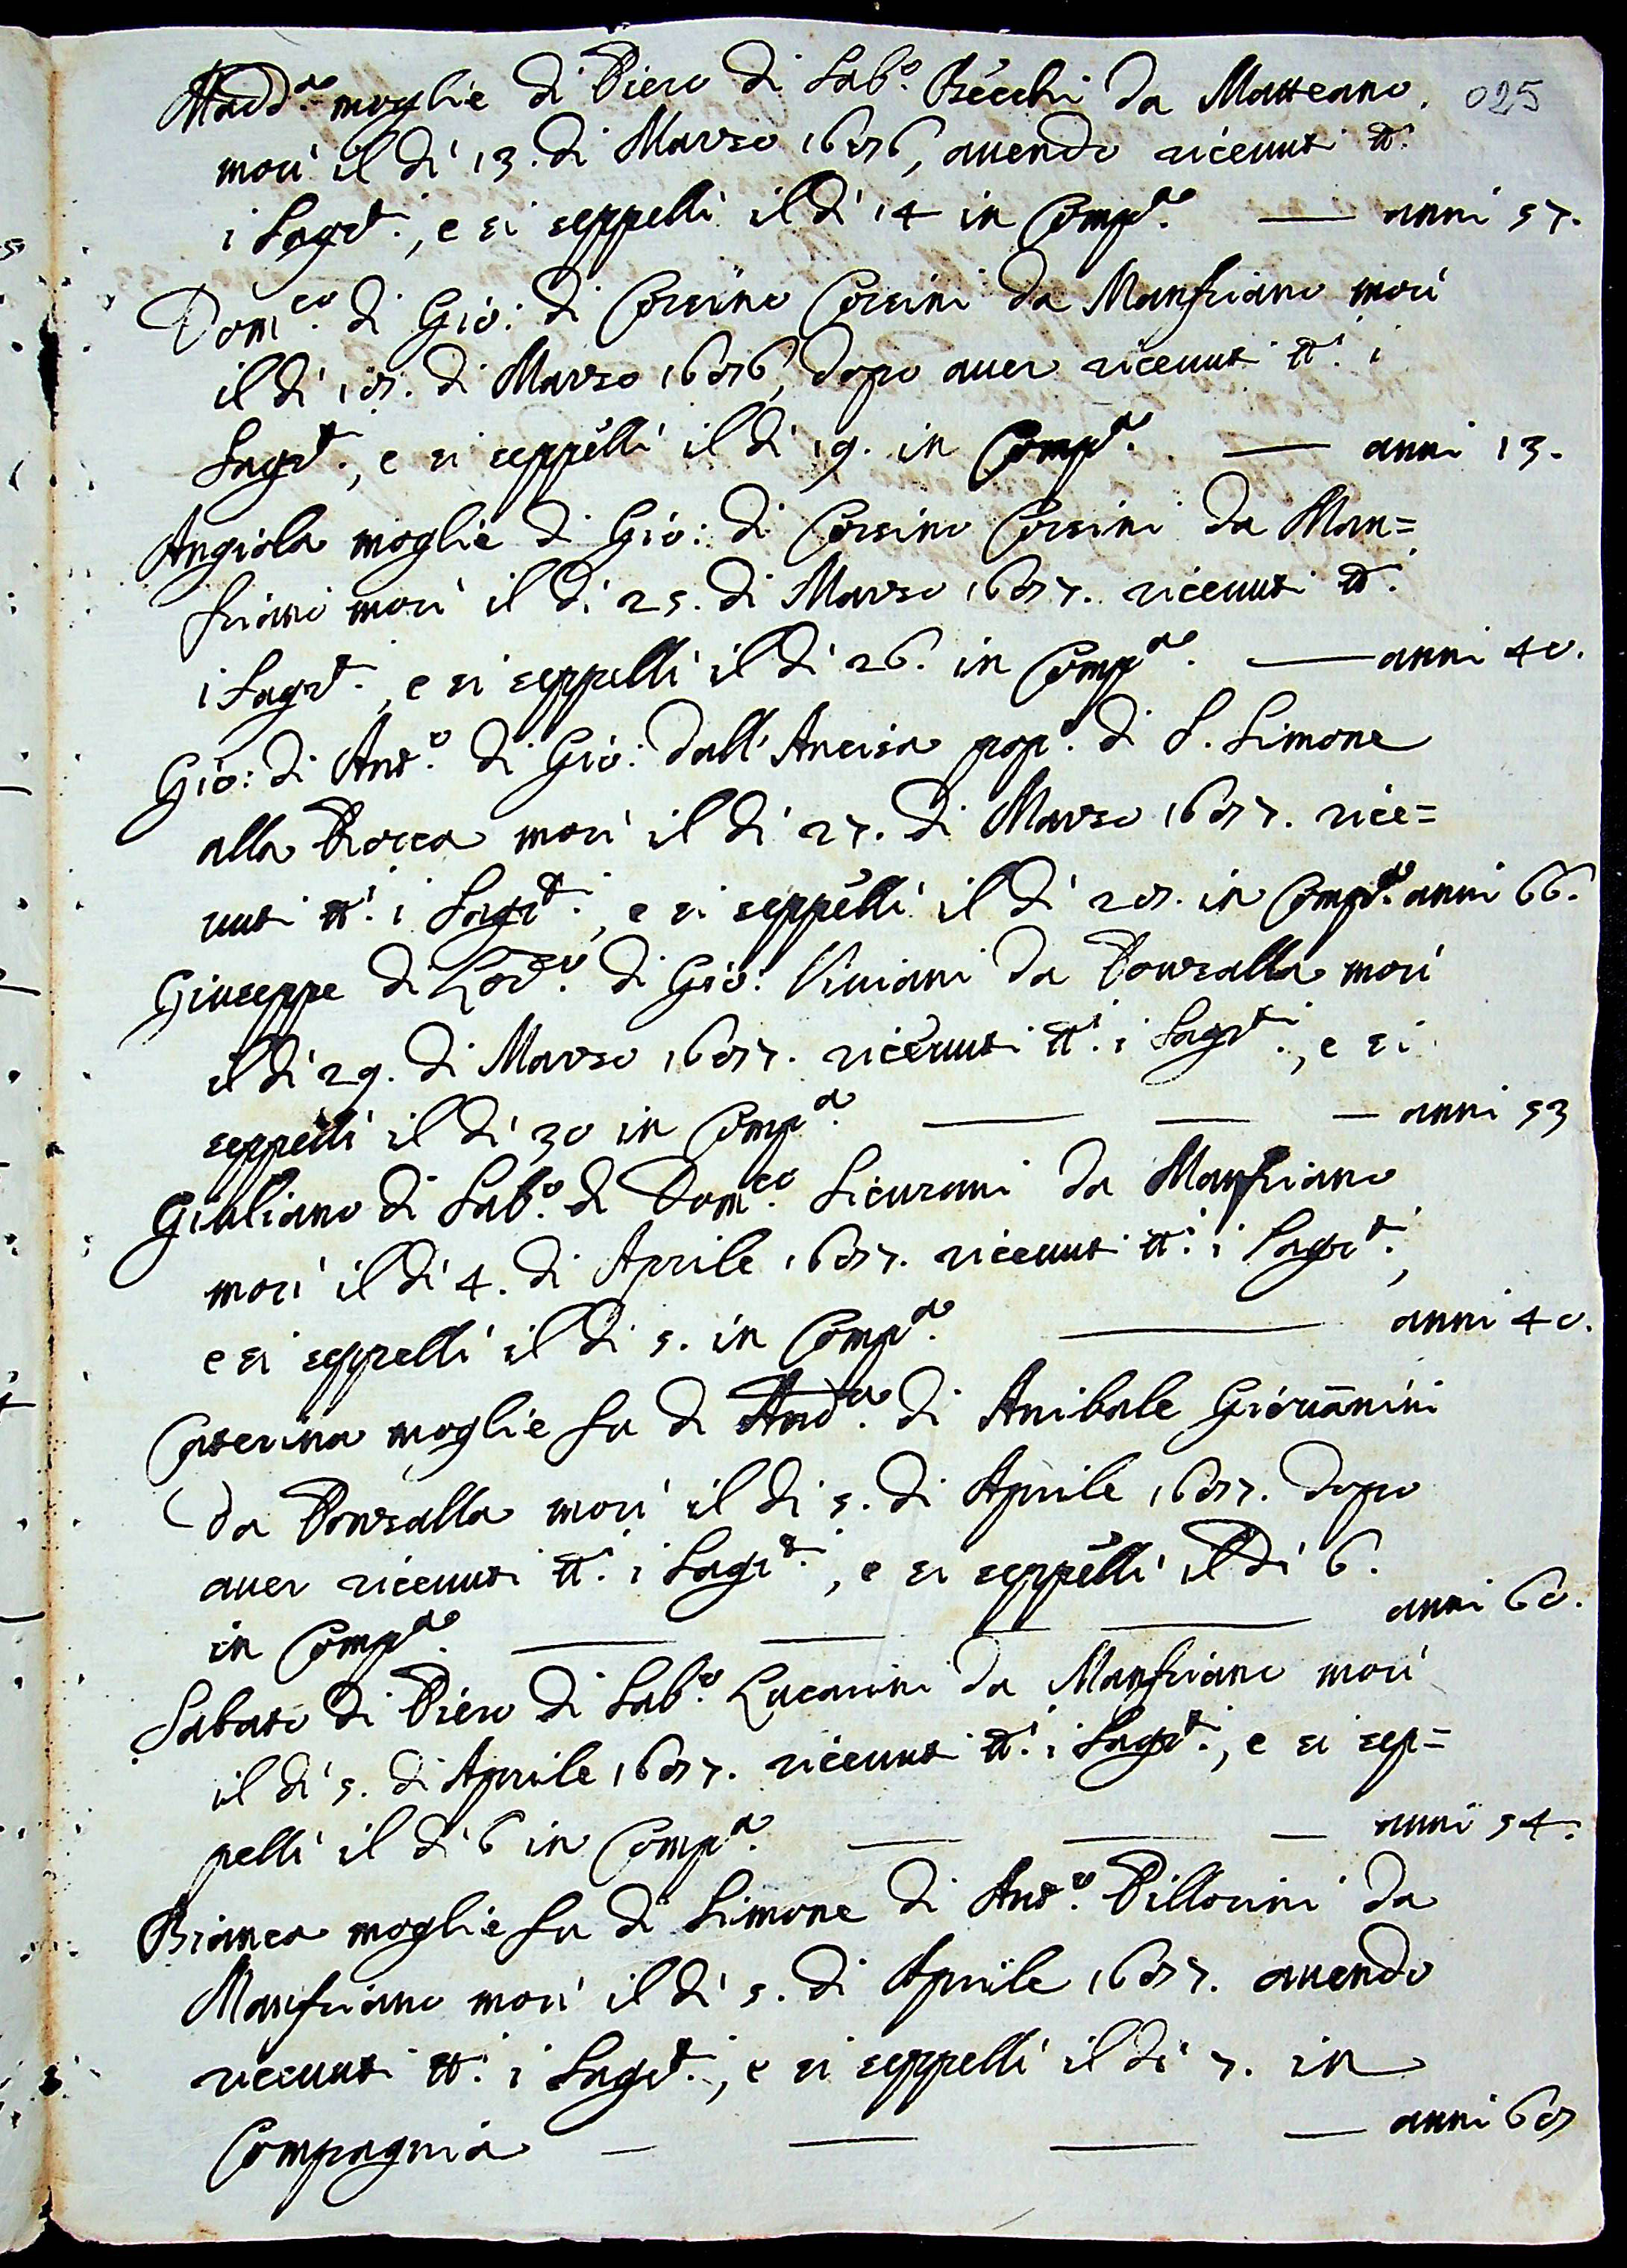 Madd.ª moglie di Piero di Sab.º Becchi da Matteano. 025
morì il dì 13. di Marzo 1686, auendo riceuuti tt.i
i Sagr.ti, e si seppellì il dì 14 in Comp.ª — anni 57.
Dom.co di Gio: di Corsino Corsini da Manfriano morì
il dì 18. di Marzo 1686, dopo auer riceuuti tt.i i
Sagr.ti, e si seppellì il dì 19. in Comp.ª — anni 13.
Angiola moglie di Gio: di Corsino Corsini da Man=
friano morì il dì 25. di Marzo 1687. riceuuti tt.i
i Sagr.ti, e si seppellì il dì 26. in Comp.ª — anni 40.
Gio: di Ant.º di Gio: dall'Ancisa pop.º di S. Simone
alla Rocca morì il dì 27. di Marzo 1687. rice=
uuti tt.i i Sagr.ti, e si seppellì il dì 28. in Comp.ª anni 66.
Giuseppe di Lod.co di Gio: Viuiani da Ponzalla morì
il dì 29. di Marzo 1687. riceuuti tt.i i Sagr.ti, e si
seppellì il dì 30 in Comp.ª — — — anni 53
Giuliano di Sab.º di Dom.co Sicurani da Manfriano
morì il dì 4. di Aprile 1687. riceuuti tt.i i Sagr.ti,
e si seppellì il dì 5. in Comp.ª — anni 40.
Caterina moglie fu di And.ª di Anibale Giouānini
da Ponzalla morì il dì 5. di Aprile 1687. dopo
auer riceuuti tt.i i Sagr.ti, e si seppellì il dì 6.
in Comp.ª — — — — anni 60.
Sabato di Piero di Sab.º Lucarini da Manfriano morì
il dì 5. di Aprile 1687. riceuuti tt.i i Sagr.ti, e si sep=
pellì il dì 6 in Comp.ª — — — anni 54.
Bianca moglie fu di Simone di Ant.º Pillorini da
Manfriano morì il dì 5. di Aprile 1687. auendo
riceuuti tt.i i Sagr.ti, e si seppellì il dì 7. in
Compagnia — — — — anni 68